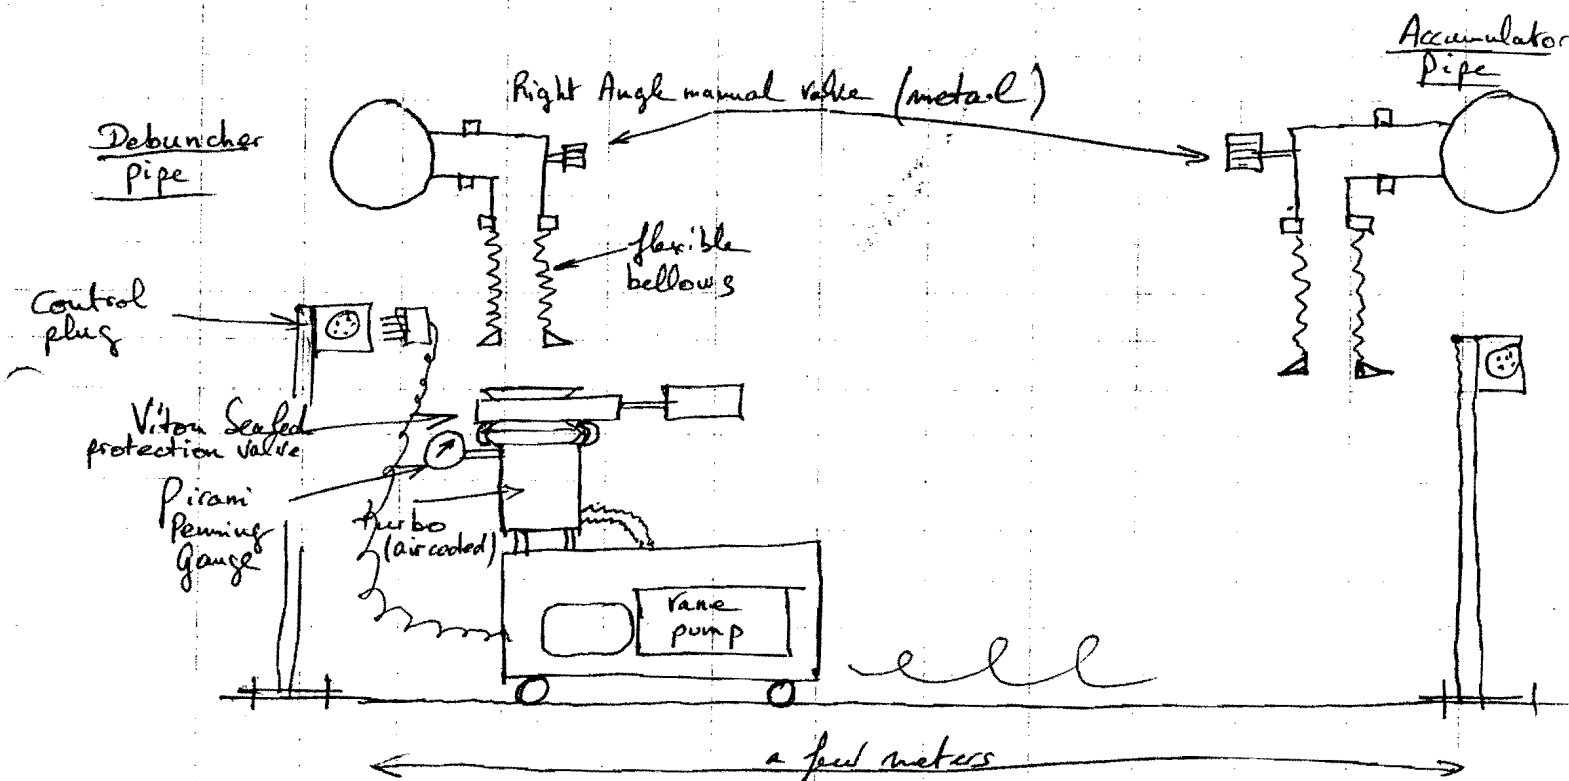 Accumulator
pipe
Right Angle manual valve (metal)
Debuncher
pipe
flexible
bellows
Control
plug
Viton Sealed
protection valve
Pirani
Penning
Gauge
turbo
(air cooled)
vane
pump
a few meters